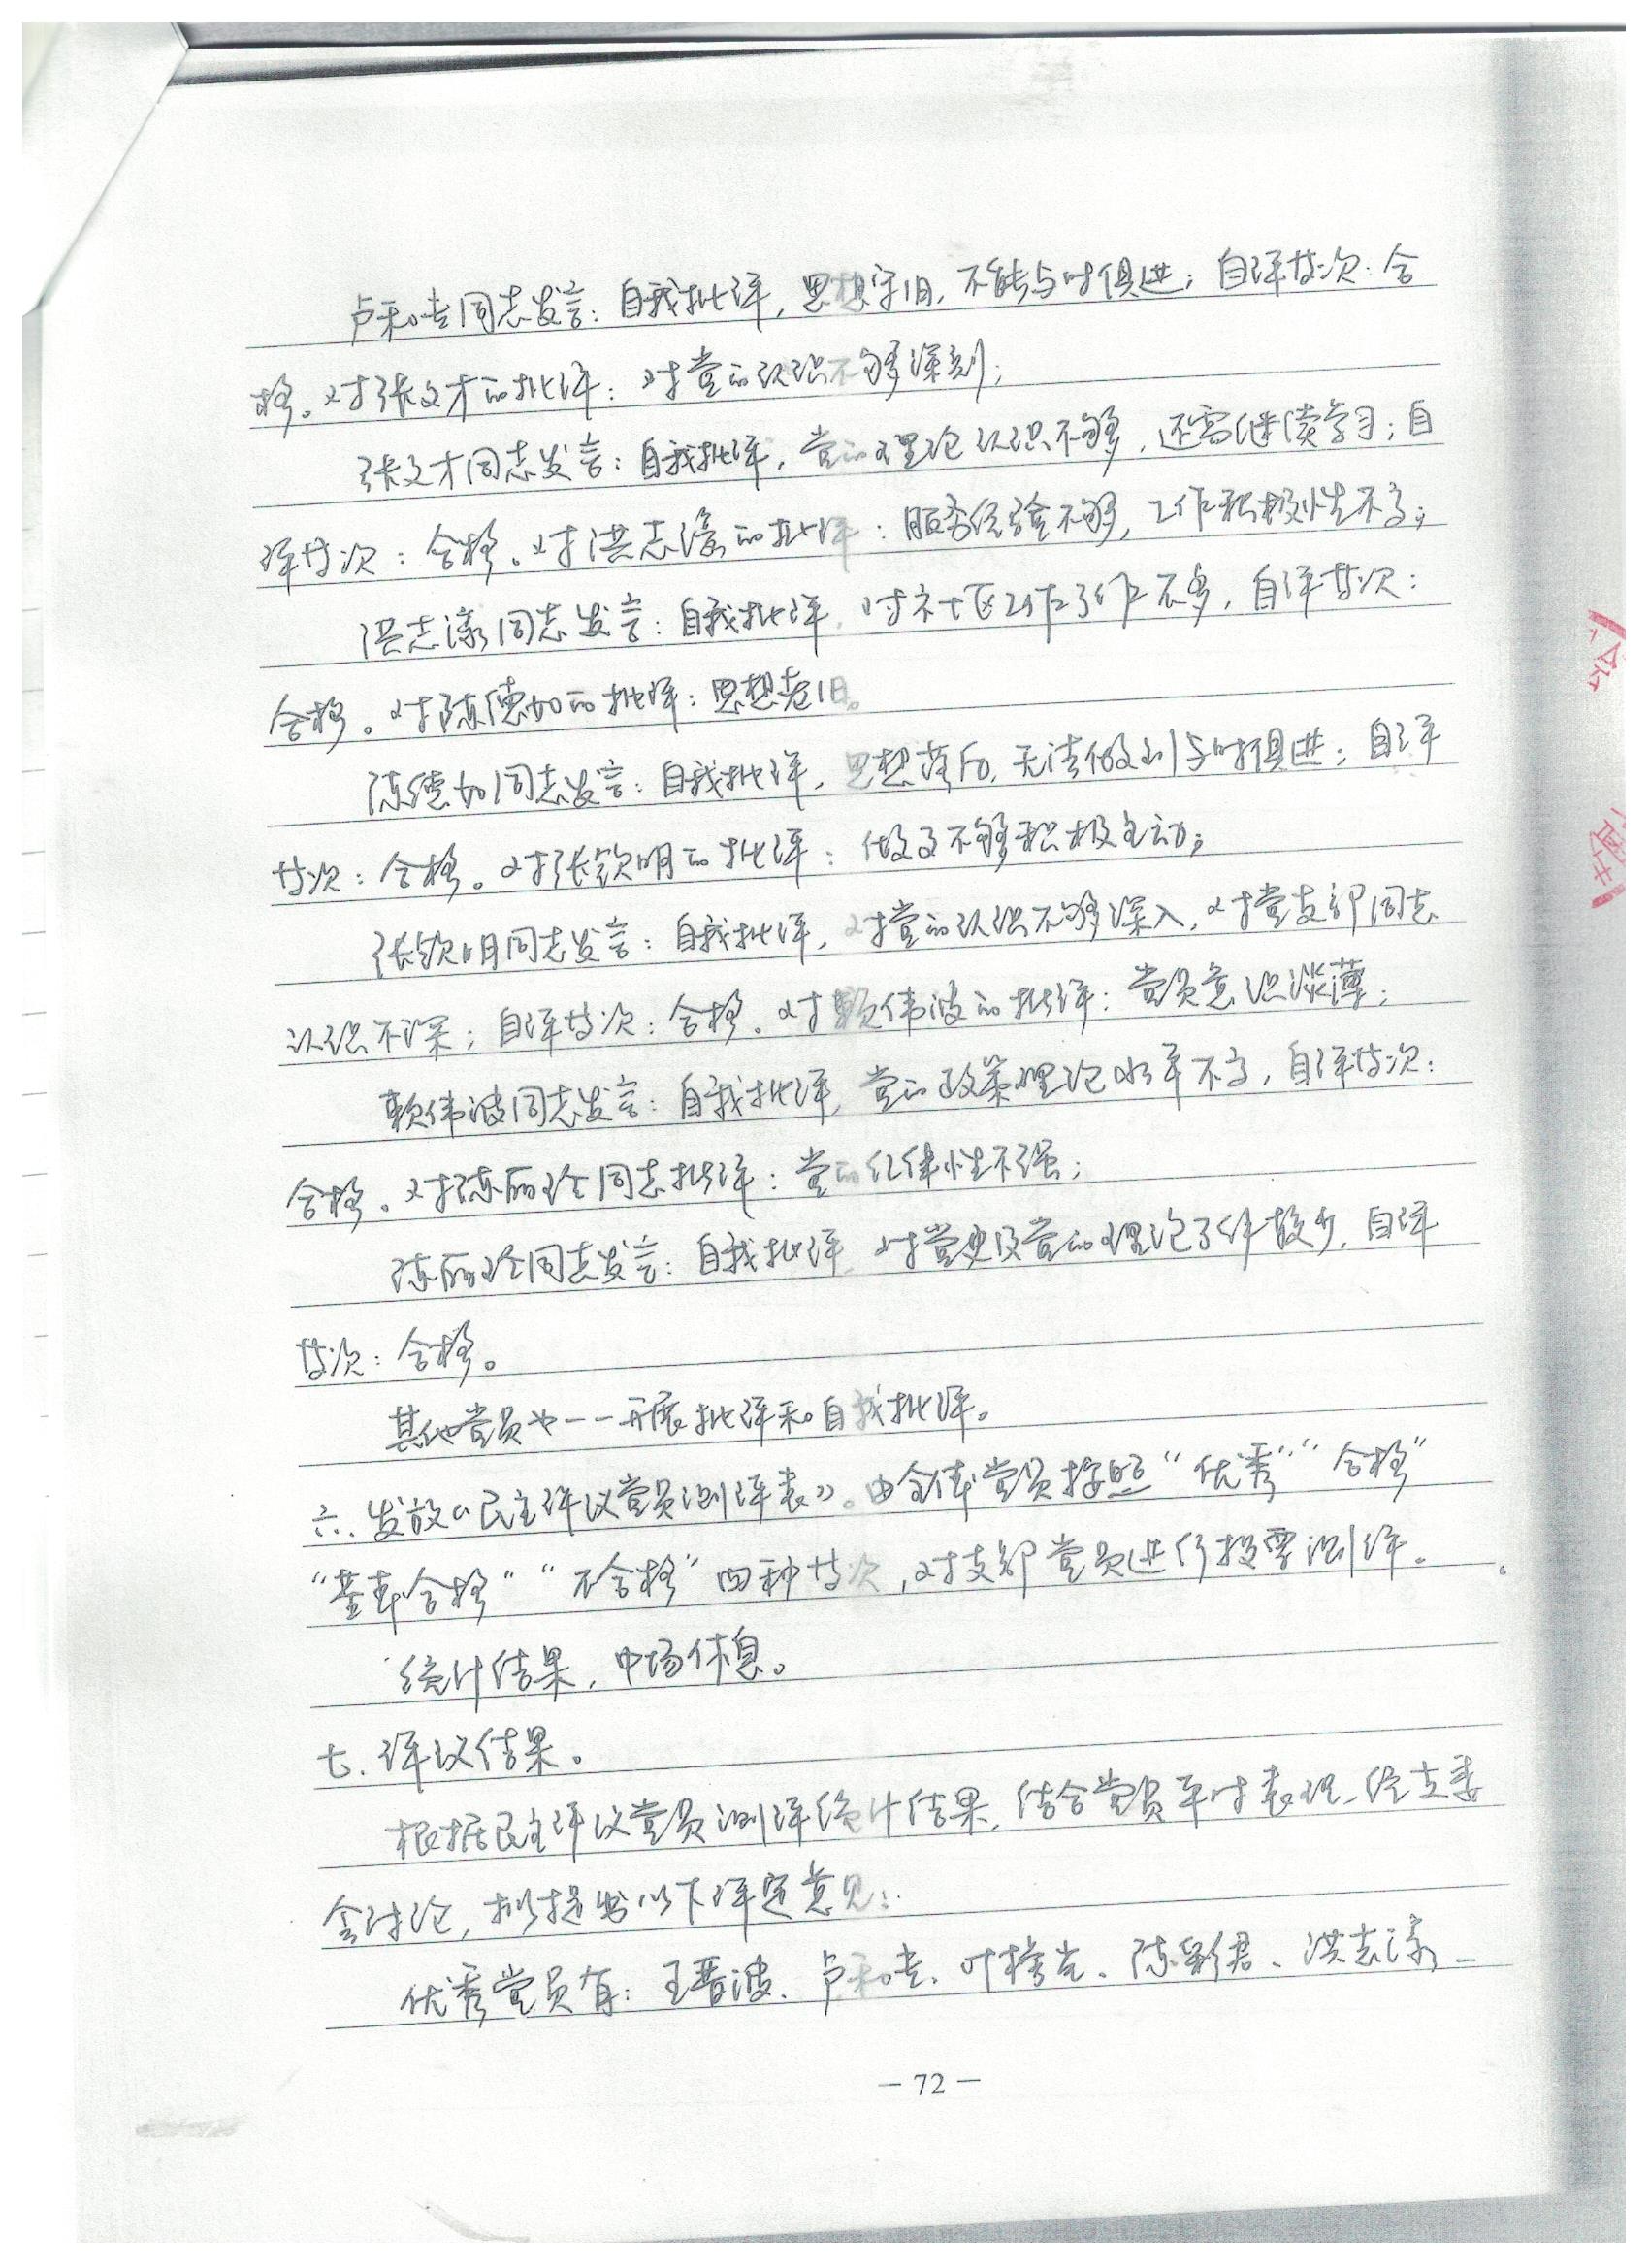 卢和吉同志发言：自我批评，思想守旧，不能与时俱进；自评等次：合
格。对张文才的批评：对党的认识不够深刻；
张文才同志发言：自我批评，党的理论认识不够，还需继续学习；自
评等次：合格。对洪志的批评：服务经验不够，工作积极性不高；
洪志同志发言：自我批评，对社区工作了解不多，自评等次：
合格。对陈德如的批评：思想老旧。
陈德如同志发言：自我批评，思想落后，无法做到与时俱进；自评
等次：合格。对张钦明的批评：做事不够积极主动；
张钦明同志发言：自我批评，对党的认识不够深入，对党支部同志
认识不深；自评等次：合格。对赖伟波的批评：党员意识淡薄；
赖伟波同志发言：自我批评，党的政策理论水平不高，自评等次：
合格。对陈丽玲同志批评：党的纪律性不强；
陈丽玲同志发言：自我批评，对党史及党的理论了解较少，自评
等次：合格。
其他党员也一一开展批评和自我批评。
六、发放《民主评议党员测评表》。由全体党员按照“优秀”“合格”
“基本合格”“不合格”四种等次，对支部党员进行投票测评。
统计结果，中场休息。
七、评议结果。
根据民主评议党员测评统计结果，结合党员平时表现、经支委
会讨论，拟提出以下评定意见：
优秀党员有：王晋波、卢和吉、叶、陈彩君、洪志、
— 72 —